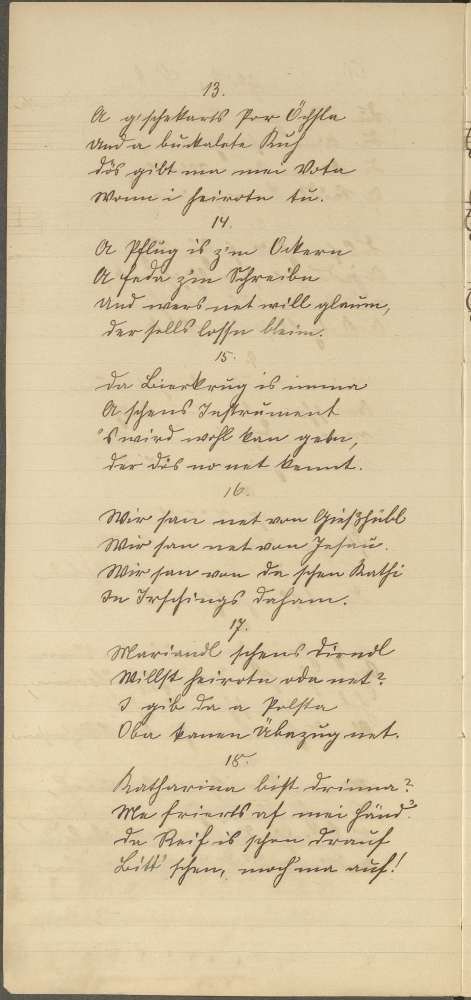 13.
A g'schekarts Por Öchsla
Und a buckalate Kuh
Dös gibt ma mei Vota
Wonn i heirotn tu.
14.
A Pflug is z'm Ockern
A Feda z'm Schreibn
Und wers net will glaum,
der solls lossn bleim.
15.
Da Bierkrug is imma
A schens Instrument
's wird wohl kan gebn,
der dös no net kennt.
16.
Wir san net von Gießhübl
Wir san net von
Wir san von da schen Kathi
In daham.
17.
Mariandl schens Dirndl
Willst heirotn oda net?
I gib da a Polsta
Oba kanen Übazug net.
18.
Katharina bist drinna?
Me frierts af mei Händ?
Da Reif is schon drauf
Bitt' schen, moch ma auf!